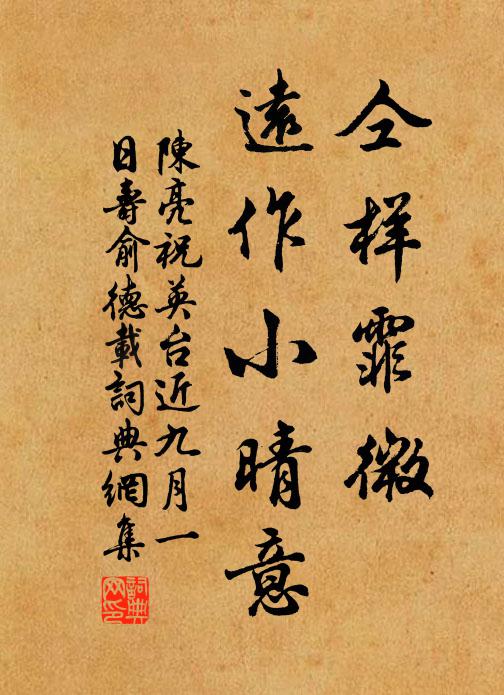 仝样霏微
遠作小晴意
陳亮祝英台近九月一
日壽俞德載詞典網集